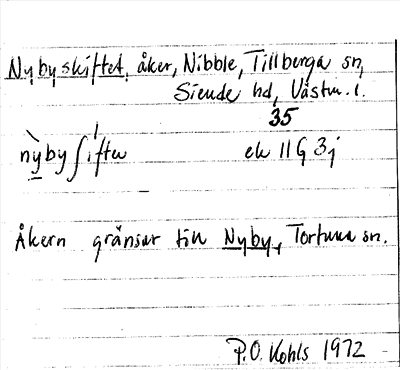 Nybyskiftet, åker, Nibble, Tillberga sn,
Siende hd, Västm. l.
35
nybyʃiftɛn ek 11 G 3j
Åkern gränsar till Nyby, Tortuna sn.
P.O. Kohls 1972